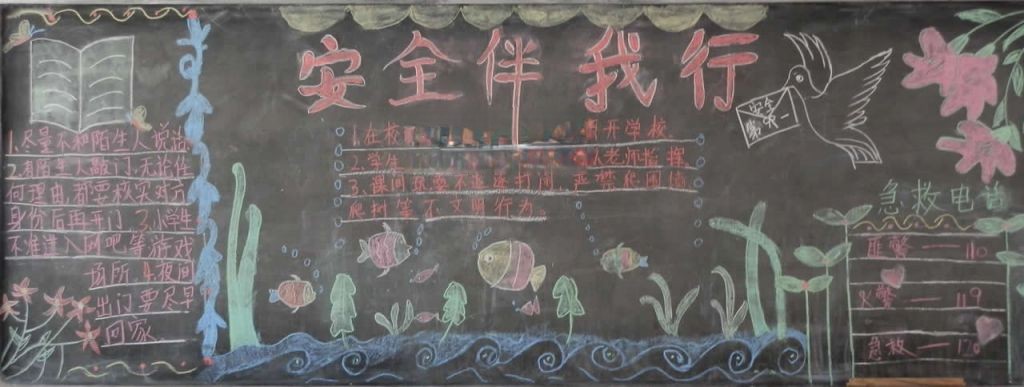 安全伴我行
安全
第一
1.尽量不和陌生人说话
2.有陌生人敲门,无论任
何理由,都要核实对方
身份后再开门 3.小学生
不准进入网吧等游戏
场所 4.夜间
出门要尽早
回家.
1.在校 开学校.
2.学生 从老师指挥
3.课间 要不追逐打闹,严禁爬围墙
爬树等不文明行为
急救电话
匪警—110
火警—119
急救—120